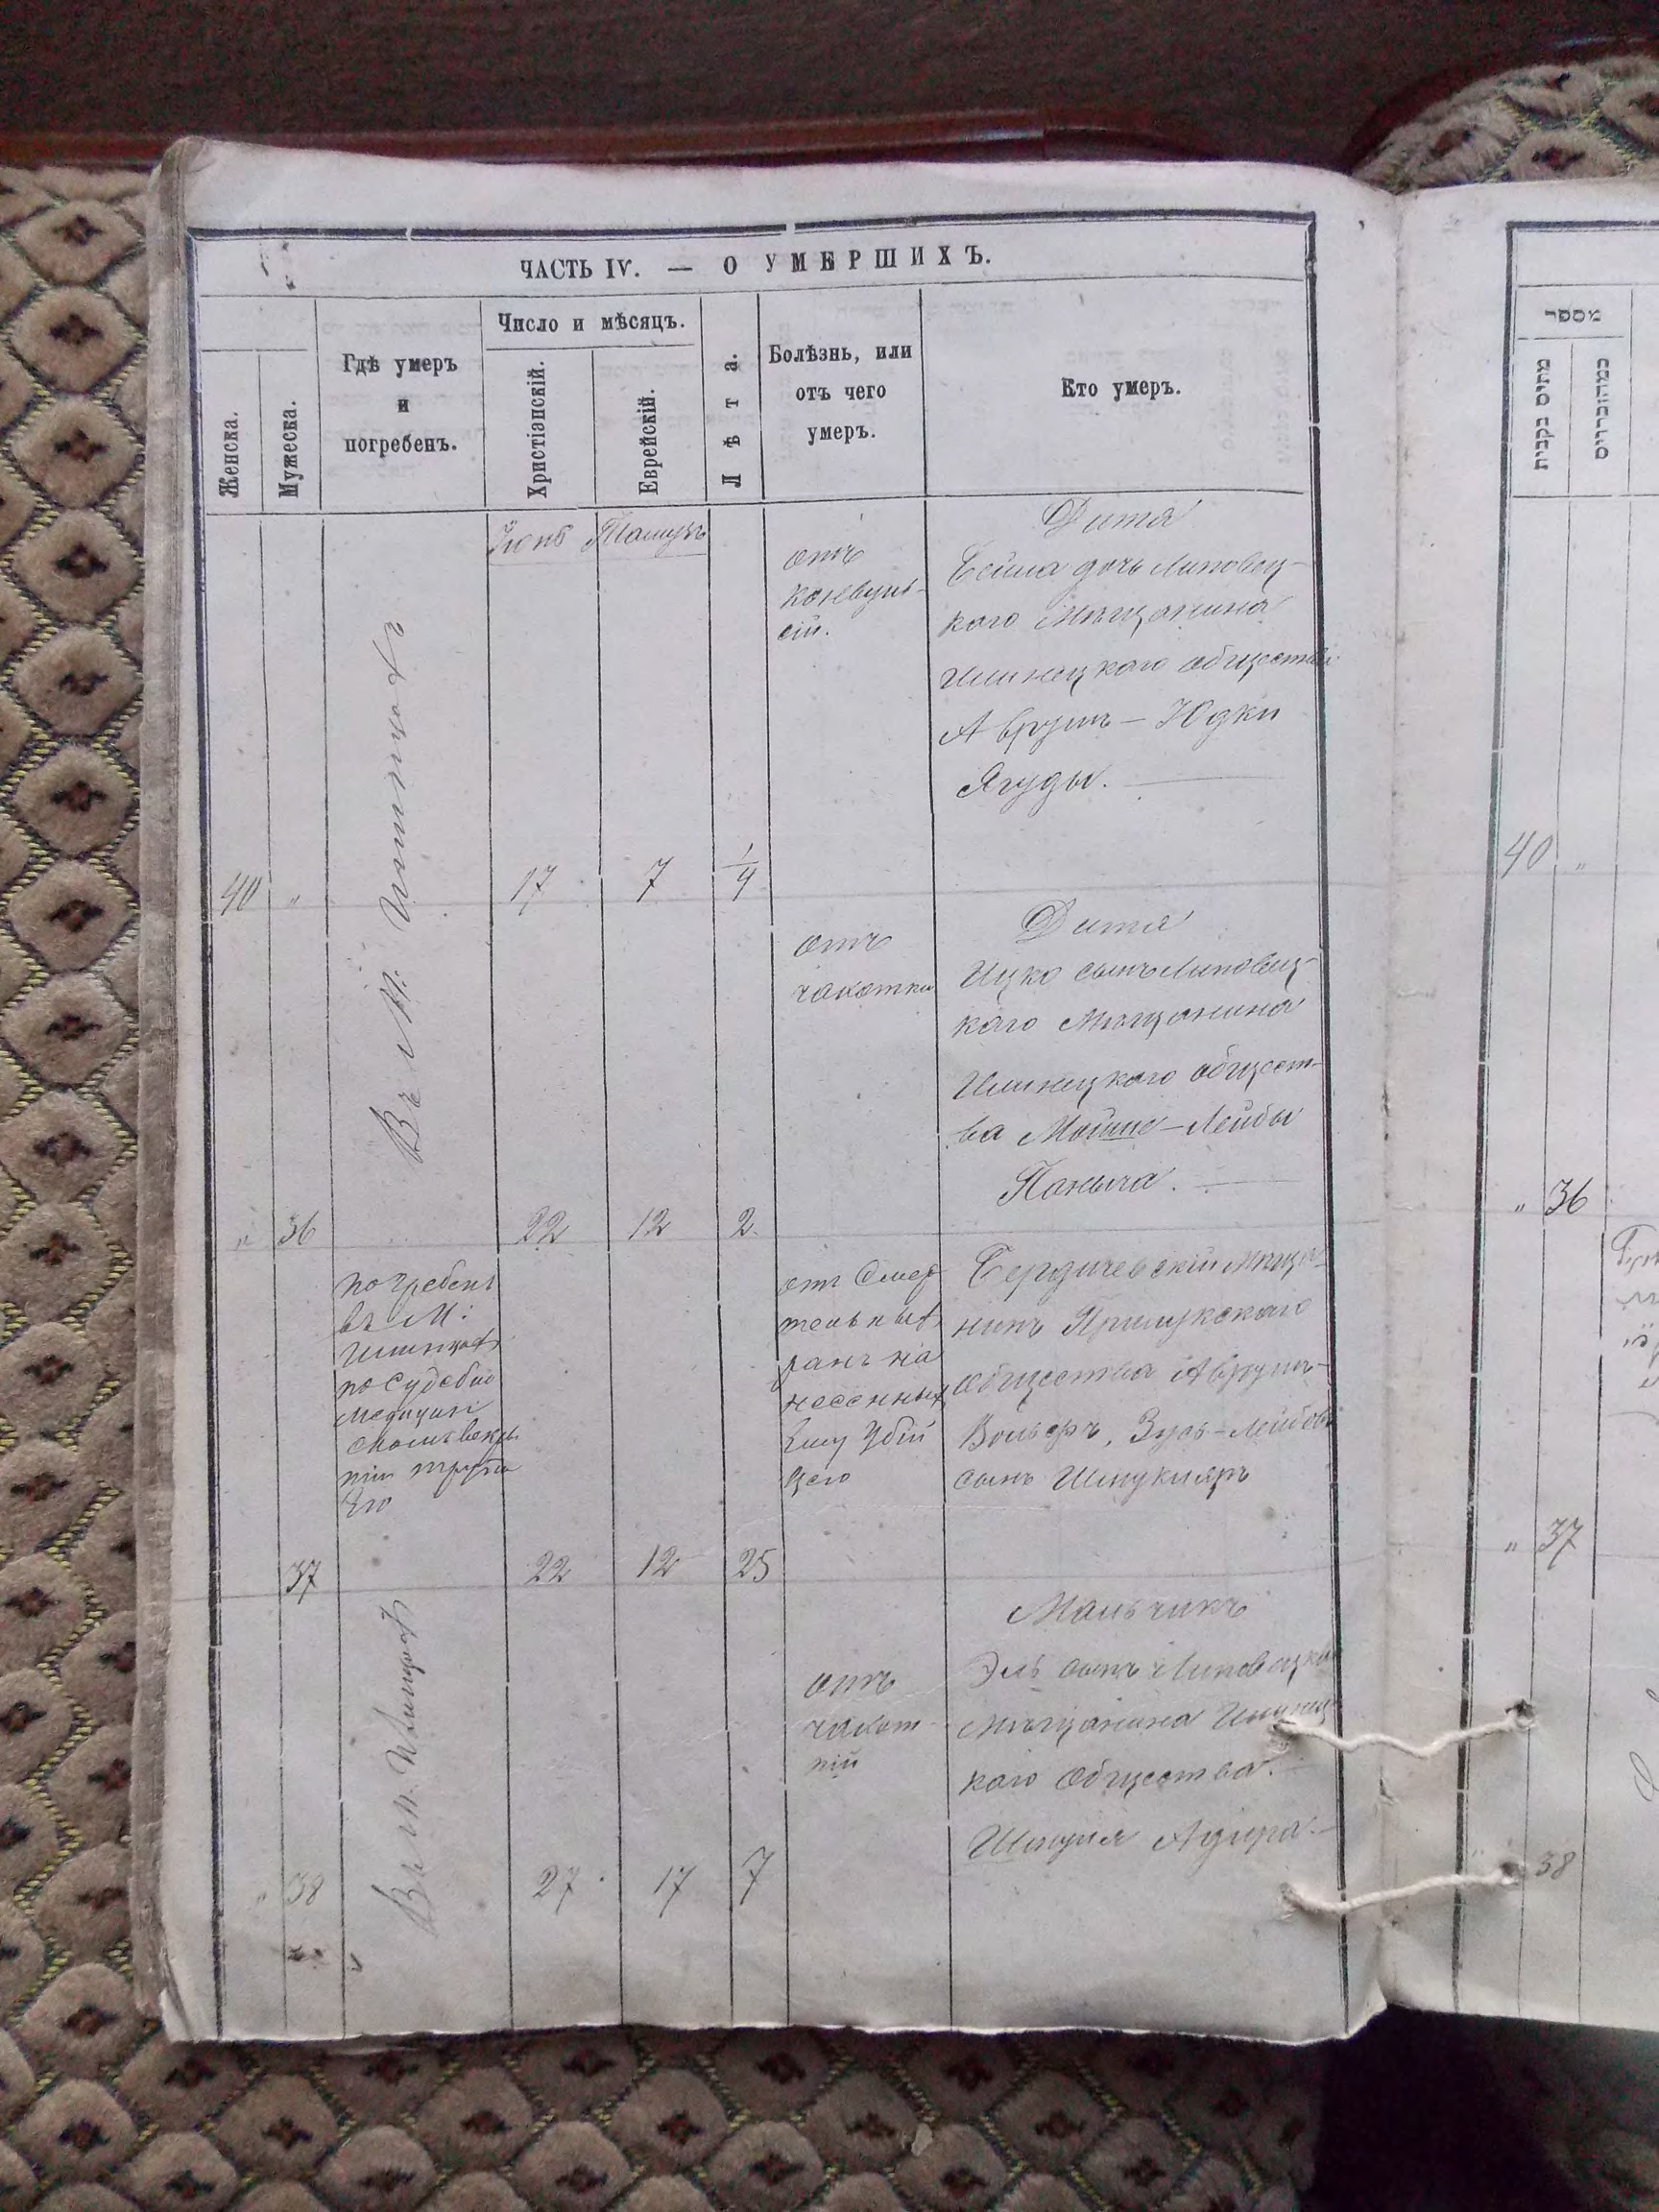 ЧАСТЬ IV. — О УМЕРШИХЪ.
Женска.
Мужеска.
Гдѣ умеръ
и
погребенъ.
Число и мѣсяцъ.
Христіанскій.
Еврейскій.
Лѣта.
Болѣзнь, или
отъ чего
умеръ.
Кто умеръ.
Іюнь Тамузъ
40 "
Въ М: Илинцахъ
17 7 1/4
отъ
конвуль-
сій.
Дитя
Бейла дочь Липовец-
кого Мѣщанина
Илинецкого общества
Аврумъ-Юдки
Ягуды.
" 36
22 12 2.
отъ
чахотки
Дитя
Ицко сынъ Липовец-
каго Мѣщанина
Илинецкаго общест-
ва Мойше-Лейбы
Паныча.
37
погребенъ
въ М:
Илинцахъ
по Судебно
Медицин
ском вскры
тіи трупа
Его
22 12 25
отъ Смер
тельныхъ
ранъ на
несенныхъ
Ему Убій
цею
Бердичевскій Мѣща-
нинъ Прилукскаго
общества Аврумъ-
Вольфъ, Зусь-Лейбовъ
сынъ Шмуклеръ
" 38
Въ м. Илинцахъ
27 17 7
отъ
чахот-
кій
Мальчикъ
Эль сынъ Липовецка
Мѣщанина Илинец
каго Общества.
Шмуля
מספר
מתים
40 "
" 36
" 37
38